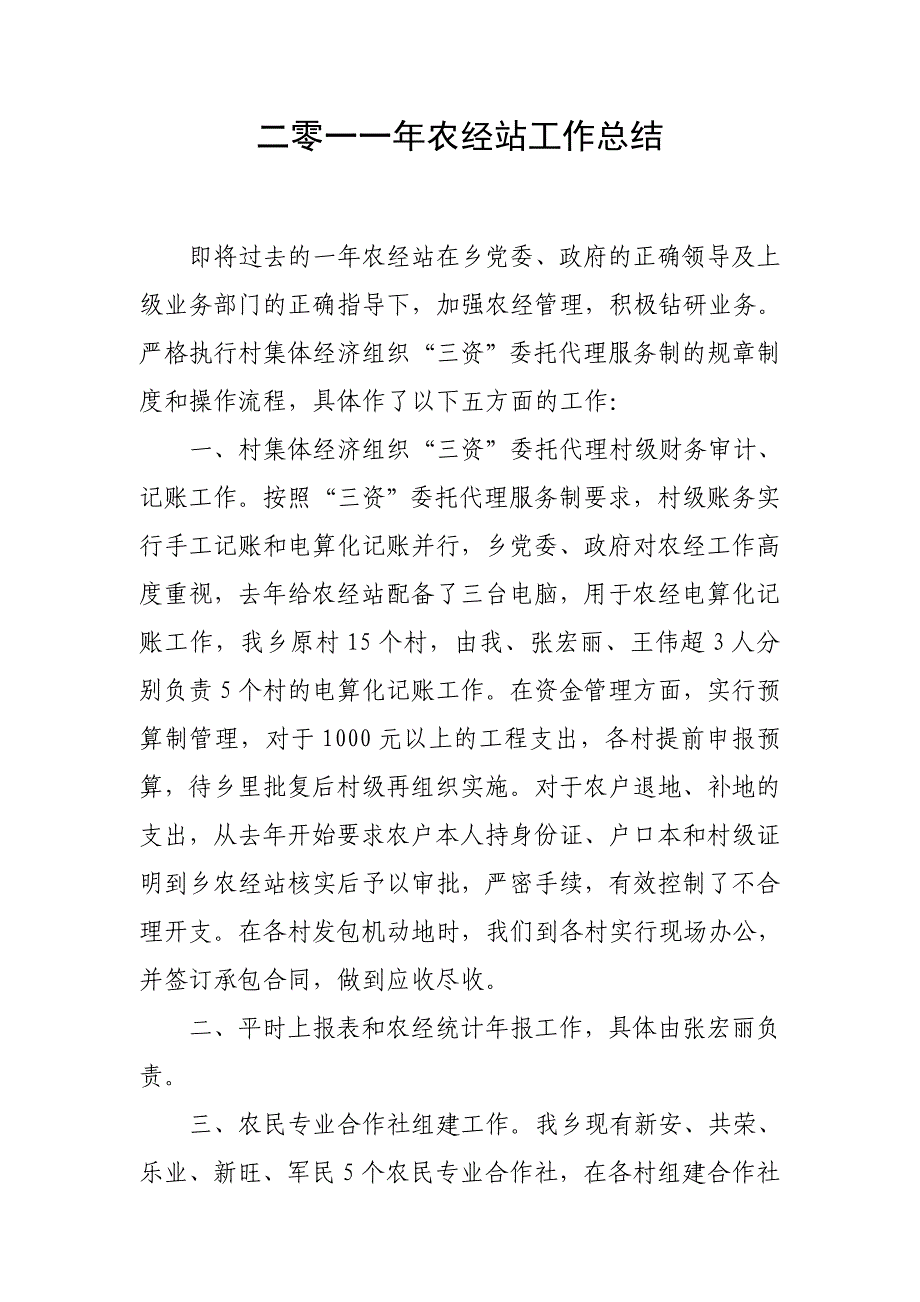 二零一一年农经站工作总结
即将过去的一年农经站在乡党委、政府的正确领导及上
级业务部门的正确指导下，加强农经管理，积极钻研业务。
严格执行村集体经济组织“三资”委托代理服务制的规章制
度和操作流程，具体作了以下五方面的工作：
一、村集体经济组织“三资”委托代理村级财务审计、
记账工作。按照“三资”委托代理服务制要求，村级账务实
行手工记账和电算化记账并行，乡党委、政府对农经工作高
度重视，去年给农经站配备了三台电脑，用于农经电算化记
账工作，我乡原村 15 个村，由我、张宏丽、王伟超 3 人分
别负责 5 个村的电算化记账工作。在资金管理方面，实行预
算制管理，对于 1000 元以上的工程支出，各村提前申报预
算，待乡里批复后村级再组织实施。对于农户退地、补地的
支出，从去年开始要求农户本人持身份证、户口本和村级证
明到乡农经站核实后予以审批，严密手续，有效控制了不合
理开支。在各村发包机动地时，我们到各村实行现场办公，
并签订承包合同，做到应收尽收。
二、平时上报表和农经统计年报工作，具体由张宏丽负
责。
三、农民专业合作社组建工作。我乡现有新安、共荣、
乐业、新旺、军民 5 个农民专业合作社，在各村组建合作社